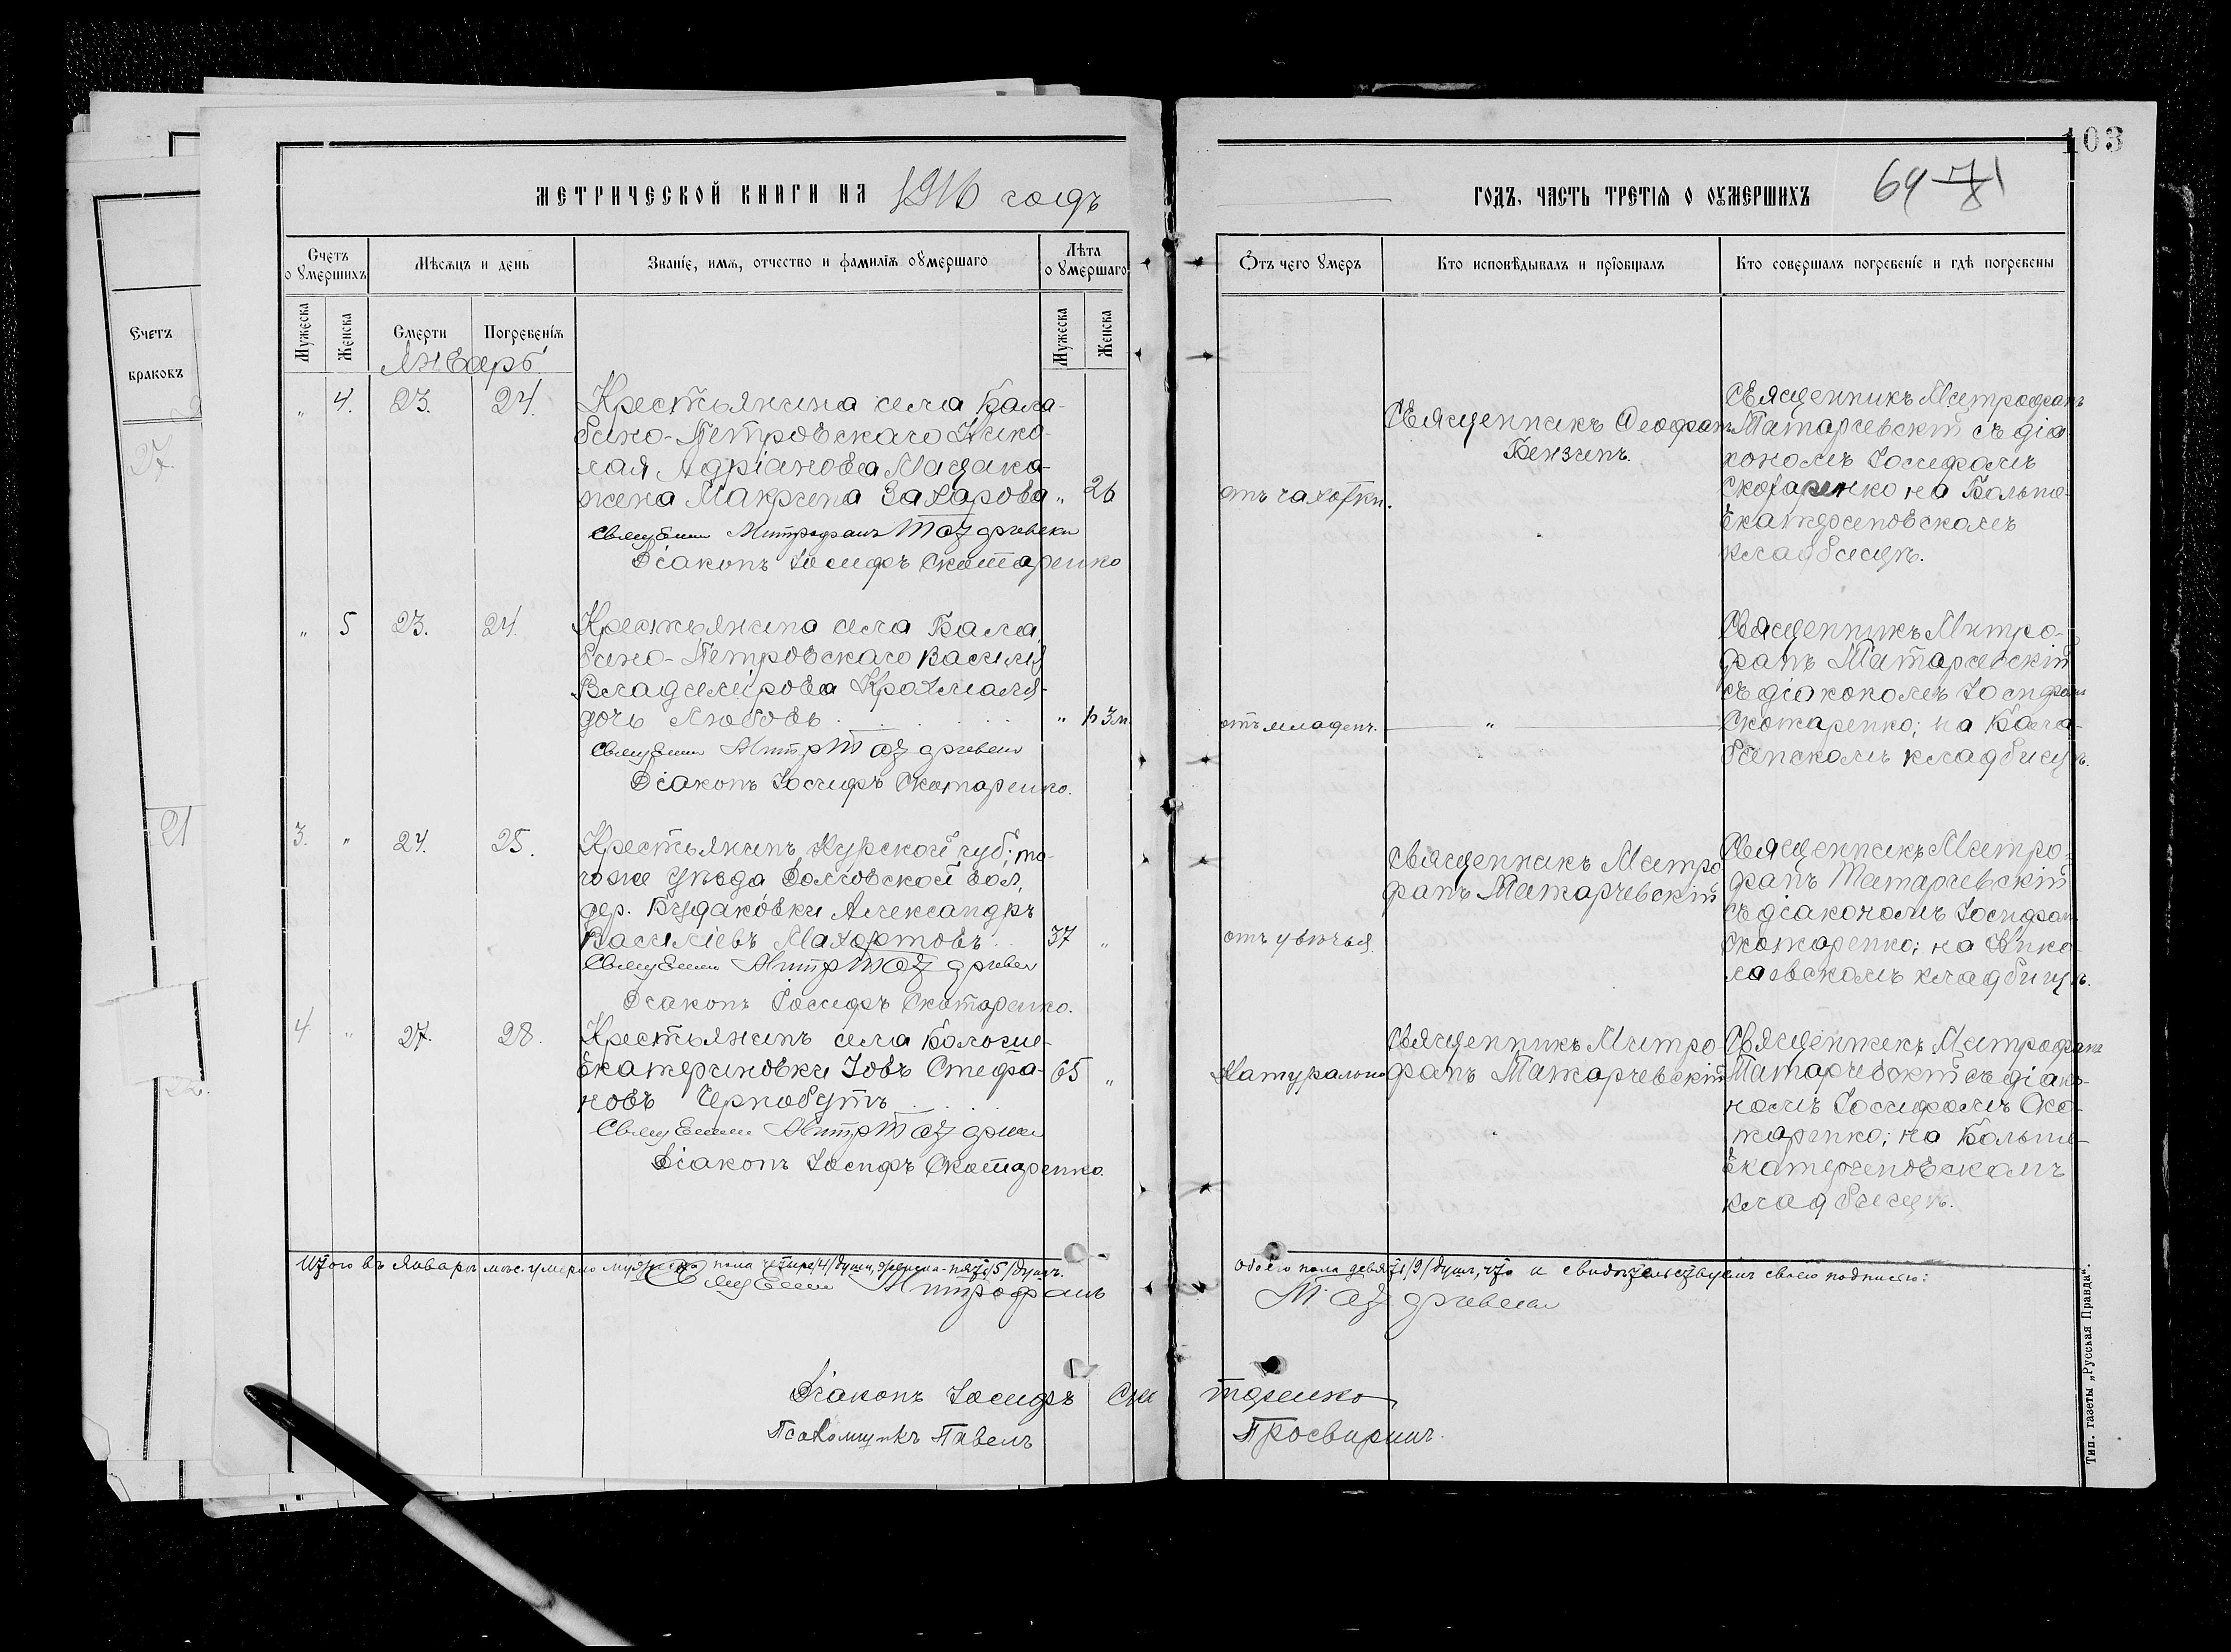 103
МЕТРИЧЕСКОЙ КНИГИ НА 1916 годъ
ГОДЪ, ЧАСТЬ ТРЕТІЯ О ОУМЕРШИХЪ 69
Счетъ о умершихъ
Мѣсяцъ и день
Званіе, имя, отчество и фамилія оумершаго
Лѣта о умершаго
Отъ чего умеръ
Кто исповѣдывалъ и пріобщалъ
Кто совершалъ погребеніе и гдѣ погребены
Мужеска
Женска
Смерти
Погребенія
Мужеска
Женска
Январь
Счетъ
браковъ
27
21
" 4. 23. 24.
Крестьянина села Бала-
бино-Петровскаго Нико-
лая Адріанова
жена Макрина Захарова " 26
Священ Митрофанъ Татарчевски
Діаконъ Іосифъ Скотаренко
отъ чахотки.
Священникъ Ѳеофанъ
Бензинъ.
Священникъ Митрофанъ
Татарчевскій съ діа
кономъ Іосифомъ
Скотаренко на Больше
Екатериновскомъ
кладбищѣ.
" 5 23. 24.
Крестьянина села Бала
бино-Петровскаго Василія
Владимірова Крахмаля-
дочь Любовь " 3м.
Священ Митр Татарчевски
Діаконъ Іосифъ Скотаренко.
отъ младен.
"
Священникъ Митро-
фанъ Татарчевскій
съ діакономъ Іосифом
Скотаренко; на Бала-
бинскомъ кладбищѣ.
3. " 24. 25.
Крестьянинъ Курской губ; то-
гоже уѣзда Долговской вол,
дер. Будаковки Александръ
Василіевъ Махортовъ 37 "
Священ Митр Татарчевс
Діаконъ Іосифъ Скотаренко.
отъ увѣчья
Священникъ Митро
фанъ Татарчевскій
Священникъ Митро-
фанъ Татарчевскій
съ діакономъ Іосифом
Скотаренко; на Нико
лаевскомъ кладбищѣ.
4 " 27. 28.
Крестьянинъ села Больше-
Екатериновки Іовъ Стефа- 65 "
новъ Чернобутъ
Священ Митр Татарчев
Діаконъ Іосифъ Скотаренко.
Натурально
Священникъ Митро
фанъ Татарчевскій
Священникъ Митрофанъ
Татарчевскій съ діако-
номъ Іосифомъ Ско-
таренко; на Больше-
Екатериновскомъ
кладбищѣ.
Итого въ Январѣ мѣс. умерло мужеска пола четыре /4/ души, женска-пять /5/ душъ.
обоего пола девять /9/ душъ, что и свидѣтельствуемъ своею подписью:
Священ Митрофанъ Татарчевски
Діаконъ Іосифъ Скотаренко
Псаломщикъ Павелъ Просвиринъ.
Тип. газеты „Русская Правда“.